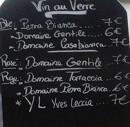 Vin au Verre
Blc. Pema Bianca .... 7€
Domaine Gentile .. 6€
Domaine Casabianca
Rosé. Domaine Gentile 7€
Rge. Domaine Torraccia . 6€
Domaine Pema Bianca . 6€
* YL Yves Leccia .... 7€